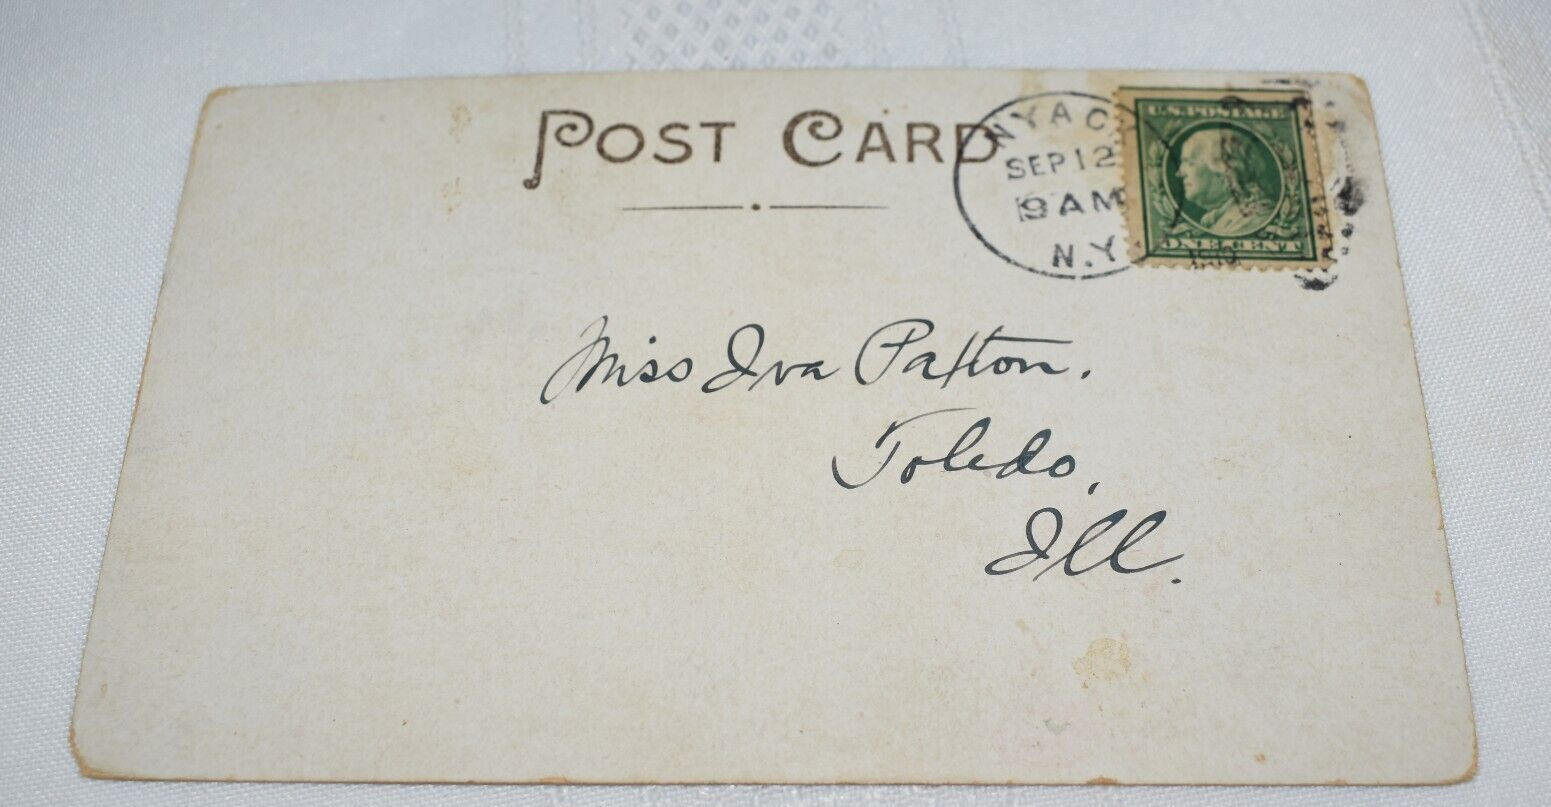 POST CARD
NYACK
SEP 12
9 AM
N.Y.
U.S. POSTAGE
ONE CENT
Miss Iva Paxton.
Toledo,
Ill.